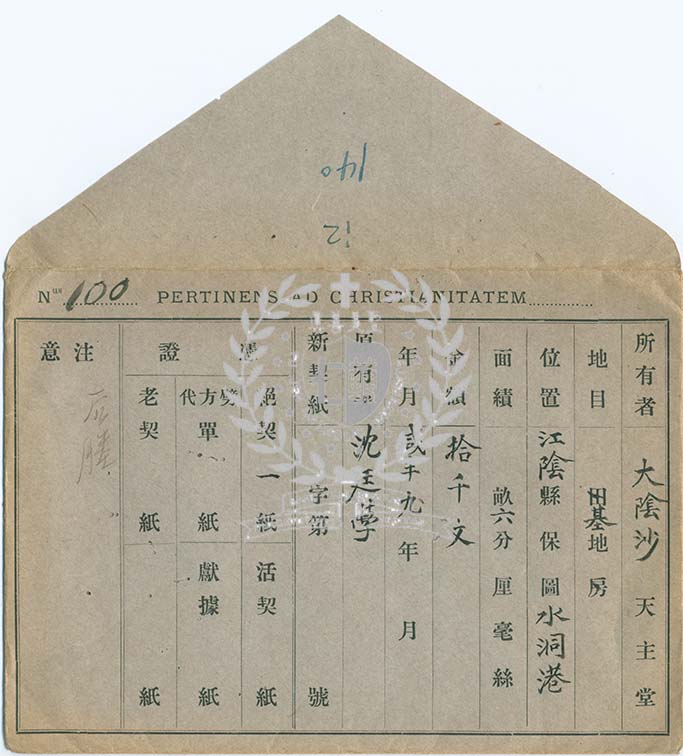 140
12
Nus 100 PERTINENS AD CHRISTIANITATEM
所有者 大陰沙 天主堂
地目 田基地房
位置 江陰縣保圖水洞港
面績 畝六分厘毫絲
金額 拾千文
年月 咸丰九年 月
原有者 沈廷
新契紙 字第 號
憑證
絕契 一紙 活契 紙
劈方代單 紙 獻據 紙
老契 紙 紙
注意